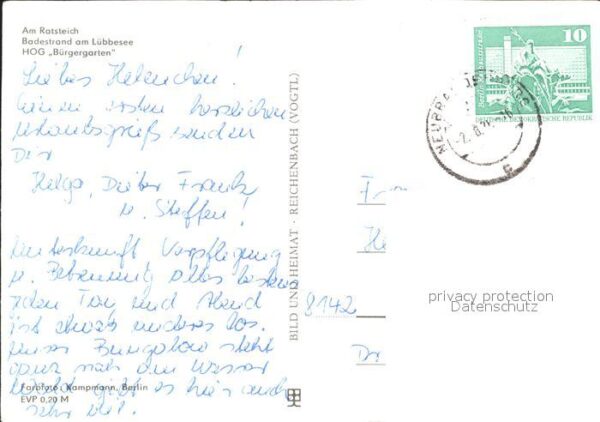 Am Ratsteich
Badestrand am Lübbesee
HOG „Bürgergarten"
Liebes Helenchen!
Einen ersten herzlichen
Urlaubsgruß senden
Dir
Helga, Dieter, Frank
u. Steffen!
Unterkunft, Verpflegung
u. Betreuung alles bestens
Jeden Tag und Abend
ist etwas anderes los.
Unser Bungalow steht
ganz nah am Wasser
Wald gibt es hier auch
sehr viel.
Farbfoto: Kampmann, Berlin
EVP 0,20 M
BILD UND HEIMAT · REICHENBACH (VOGTL)
10
DEUTSCHE DEMOKRATISCHE REPUBLIK
Fr
He
8142
Dr
privacy protection
Datenschutz